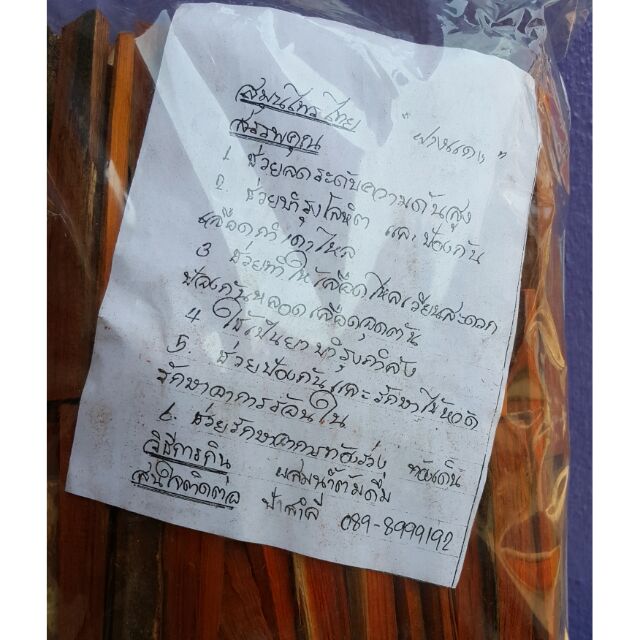 สมุนไพรไทย "ฝางแดง"
สรรพคุณ
1. ช่วยลดระดับความดันสูง
2. ช่วยบำรุงโลหิต และป้องกัน
เลือดกำเดาไหล
3 ช่วยทำให้เลือดไหลเวียนสะดวก
ป้องกันหลอดเลือดอุดตัน
4 ใช้เป็นยาบำรุงกำลัง
5. ช่วยป้องกันและรักษาไข้หวัด
รักษาอาการร้อนใน
6 ช่วยรักษาอาการท้องร่วง ท้องเดิน
วิธีการกิน ผสมน้ำต้มดื่ม
สนใจติดต่อ ป้าสำลี 089-8999192